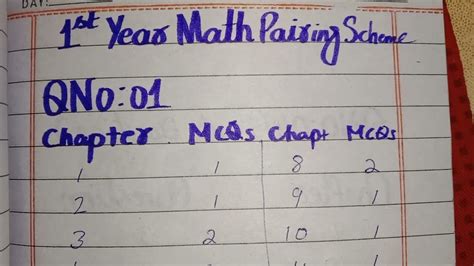 DAY:
1st Year Math Pairing Scheme
QNo:01
Chapter MCQs Chapt MCQs
1 1 8 2
2 1 9 1
3 2 10 1